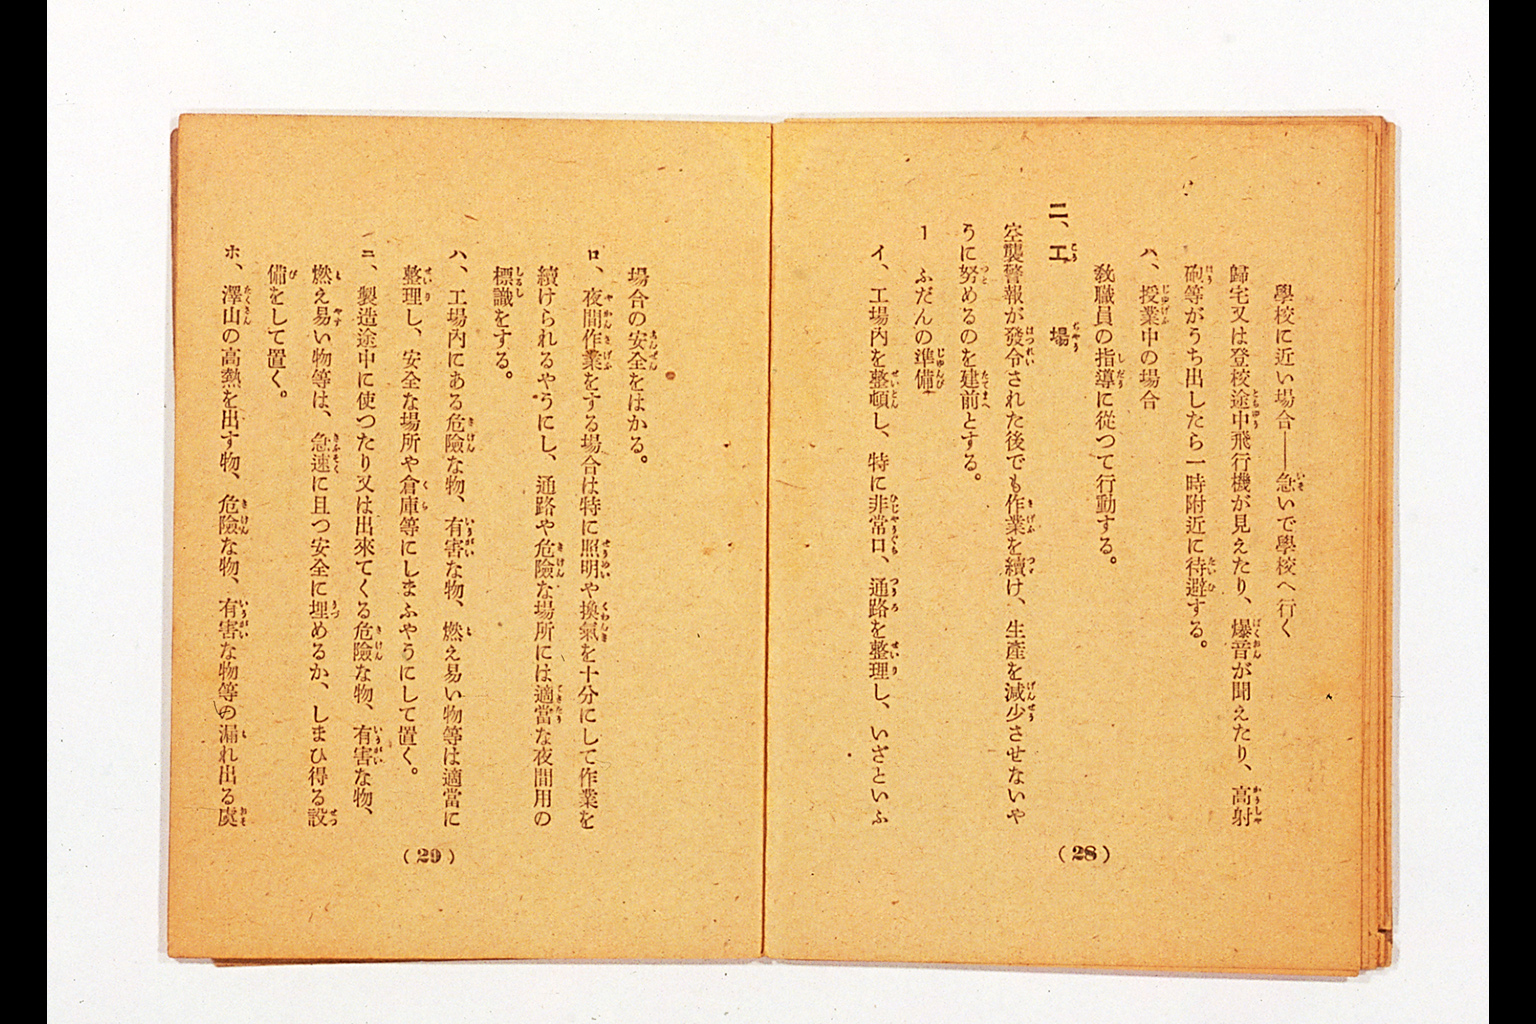 學校に近い場合――急いで學校へ行く
歸宅又は登校途中飛行機が見えたり、爆音が聞えたり、高射
砲等がうち出したら一時附近に待避する。
ハ、授業中の場合
敎職員の指導に從つて行動する。
二、工場
空襲警報が發令された後でも作業を續け、生產を減少させないや
うに努めるのを建前とする。
1 ふだんの準備
イ、工場內を整頓し、特に非常口、通路を整理し、いざといふ
(28)
場合の安全をはかる。
ロ、夜間作業をする場合は特に照明や換氣を十分にして作業を
續けられるやうにし、通路や危險な場所には適當な夜間用の
標識をする。
ハ、工場內にある危險な物、有害な物、燃え易い物等は適當に
整理し、安全な場所や倉庫等にしまふやうにして置く。
ニ、製造途中に使つたり又は出來てくる危險な物、有害な物、
燃え易い物等は、急速に且つ安全に埋めるか、しまひ得る設
備をして置く。
ホ、澤山の高熱を出す物、危險な物、有害な物等の漏れ出る虞
(29)